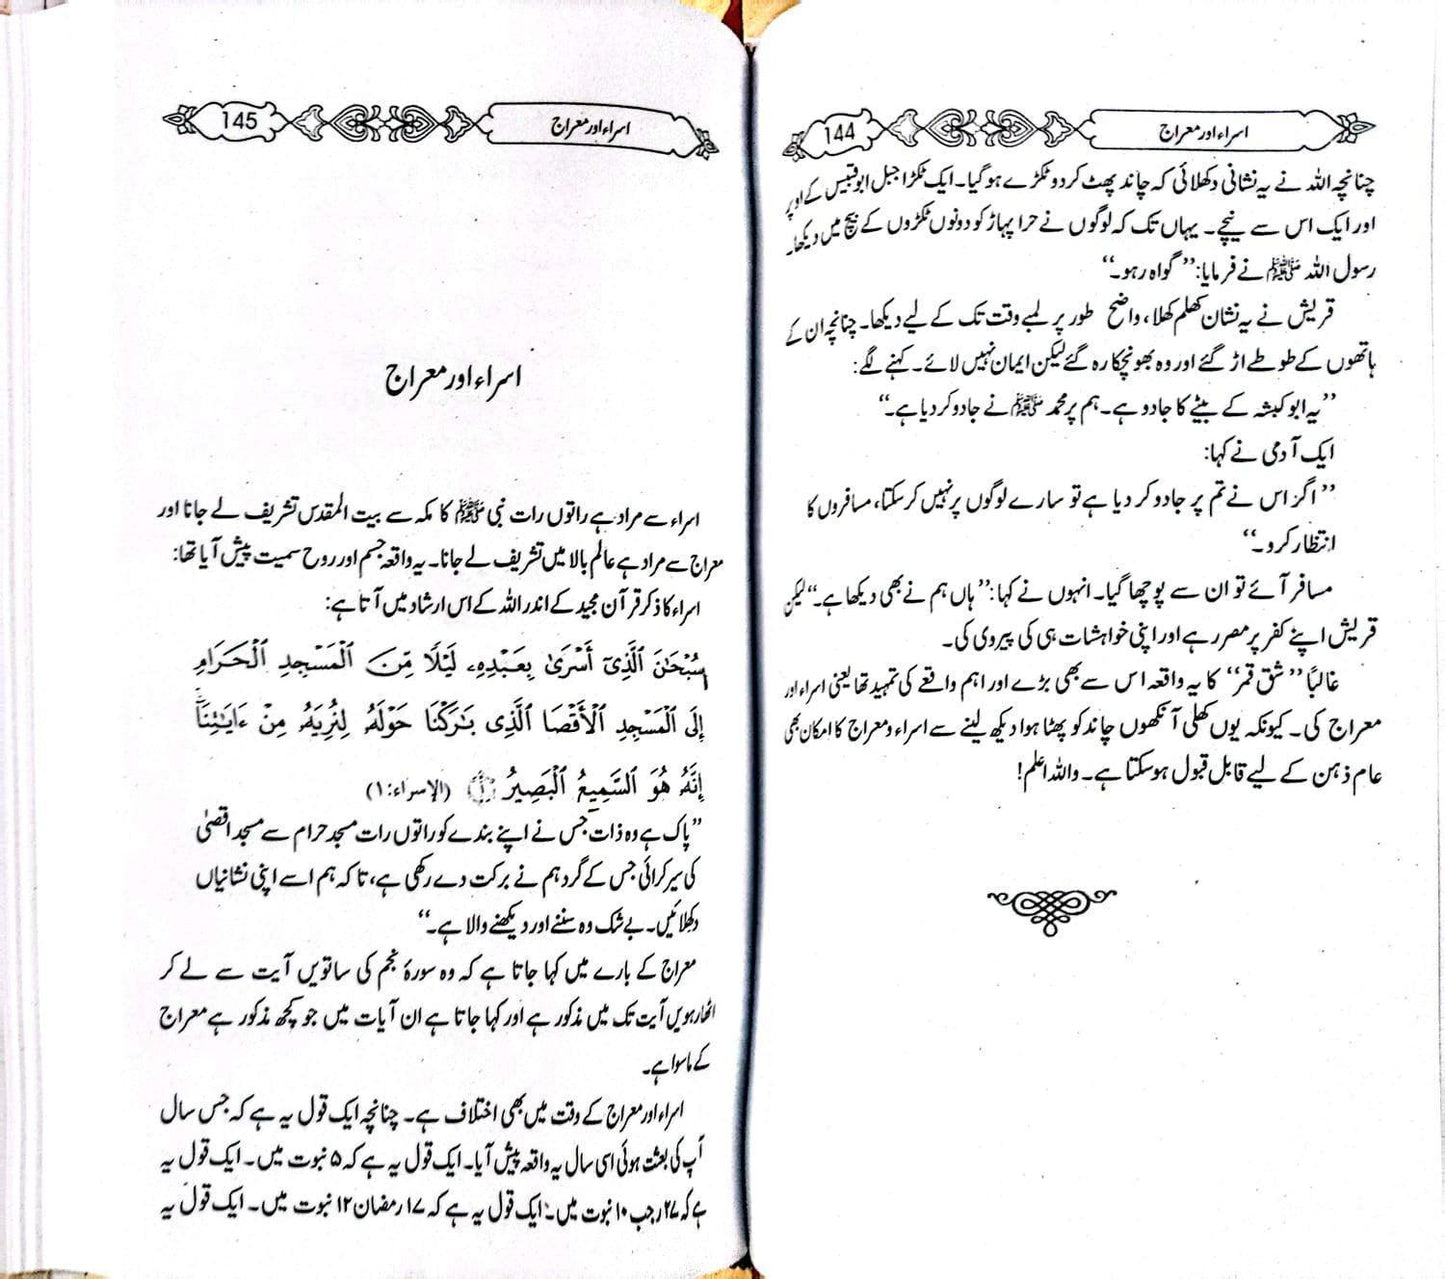 144
اسراء اور معراج
چنانچہ اللہ نے یہ نشانی دکھلائی کہ چاند پھٹ کر دو ٹکڑے ہو گیا۔ ایک ٹکڑا جبل ابو قبیس کے اوپر
اور ایک اس سے نیچے۔ یہاں تک کہ لوگوں نے حرا پہاڑ کو دونوں ٹکڑوں کے بیچ میں دیکھا۔
رسول اللہ ﷺ نے فرمایا: ’’گواہ رہو۔‘‘
قریش نے یہ نشان کھلم کھلا، واضح طور پر لمبے وقت تک کے لیے دیکھا۔ چنانچہ ان کے
ہاتھوں کے طوطے اڑ گئے اور وہ بھونچکا رہ گئے لیکن ایمان نہیں لائے۔ کہنے لگے:
’’یہ ابو کبشہ کے بیٹے کا جادو ہے۔ ہم پر محمد ﷺ نے جادو کر دیا ہے۔‘‘
ایک آدمی نے کہا:
’’اگر اس نے تم پر جادو کر دیا ہے تو سارے لوگوں پر نہیں کر سکتا، مسافروں کا
انتظار کرو۔‘‘
مسافر آئے تو ان سے پوچھا گیا۔ انہوں نے کہا: ’’ہاں ہم نے بھی دیکھا ہے۔‘‘ لیکن
قریش اپنے کفر پر مصر رہے اور اپنی خواہشات ہی کی پیروی کی۔
غالباً ’’شق قمر‘‘ کا یہ واقعہ اس سے بھی بڑے اور اہم واقعے کی تمہید تھا یعنی اسراء اور
معراج کی۔ کیونکہ یوں کھلی آنکھوں چاند کو پھٹا ہوا دیکھ لینے سے اسراء و معراج کا امکان بھی
عام ذہن کے لیے قابل قبول ہو سکتا ہے۔ واللہ اعلم!
145
اسراء اور معراج
اسراء اور معراج
اسراء سے مراد ہے راتوں رات نبی ﷺ کا مکہ سے بیت المقدس تشریف لے جانا اور
معراج سے مراد ہے عالم بالا میں تشریف لے جانا۔ یہ واقعہ جسم اور روح سمیت پیش آیا تھا:
اسراء کا ذکر قرآن مجید کے اندر اللہ کے اس ارشاد میں آتا ہے:
سُبْحَٰنَ ٱلَّذِىٓ أَسْرَىٰ بِعَبْدِهِۦ لَيْلًا مِّنَ ٱلْمَسْجِدِ ٱلْحَرَامِ
إِلَى ٱلْمَسْجِدِ ٱلْأَقْصَا ٱلَّذِى بَٰرَكْنَا حَوْلَهُۥ لِنُرِيَهُۥ مِنْ ءَايَٰتِنَآ
إِنَّهُۥ هُوَ ٱلسَّمِيعُ ٱلْبَصِيرُ ۝١ (الإسراء: ۱)
’’پاک ہے وہ ذات جس نے اپنے بندے کو راتوں رات مسجد حرام سے مسجد اقصیٰ
کی سیر کرائی جس کے گرد ہم نے برکت دے رکھی ہے، تاکہ ہم اسے اپنی نشانیاں
دکھلائیں۔ بے شک وہ سننے اور دیکھنے والا ہے۔‘‘
معراج کے بارے میں کہا جاتا ہے کہ وہ سورۂ نجم کی ساتویں آیت سے لے کر
اٹھارہویں آیت تک میں مذکور ہے اور کہا جاتا ہے ان آیات میں جو کچھ مذکور ہے معراج
کے ماسوا ہے۔
اسراء اور معراج کے وقت میں بھی اختلاف ہے۔ چنانچہ ایک قول یہ ہے کہ جس سال
آپ کی بعثت ہوئی اسی سال یہ واقعہ پیش آیا۔ ایک قول یہ ہے کہ ۵ نبوت میں۔ ایک قول یہ
ہے کہ ۲۷ رجب ۱۰ نبوت میں۔ ایک قول یہ ہے کہ ۱۷ رمضان ۱۲ نبوت میں۔ ایک قول یہ